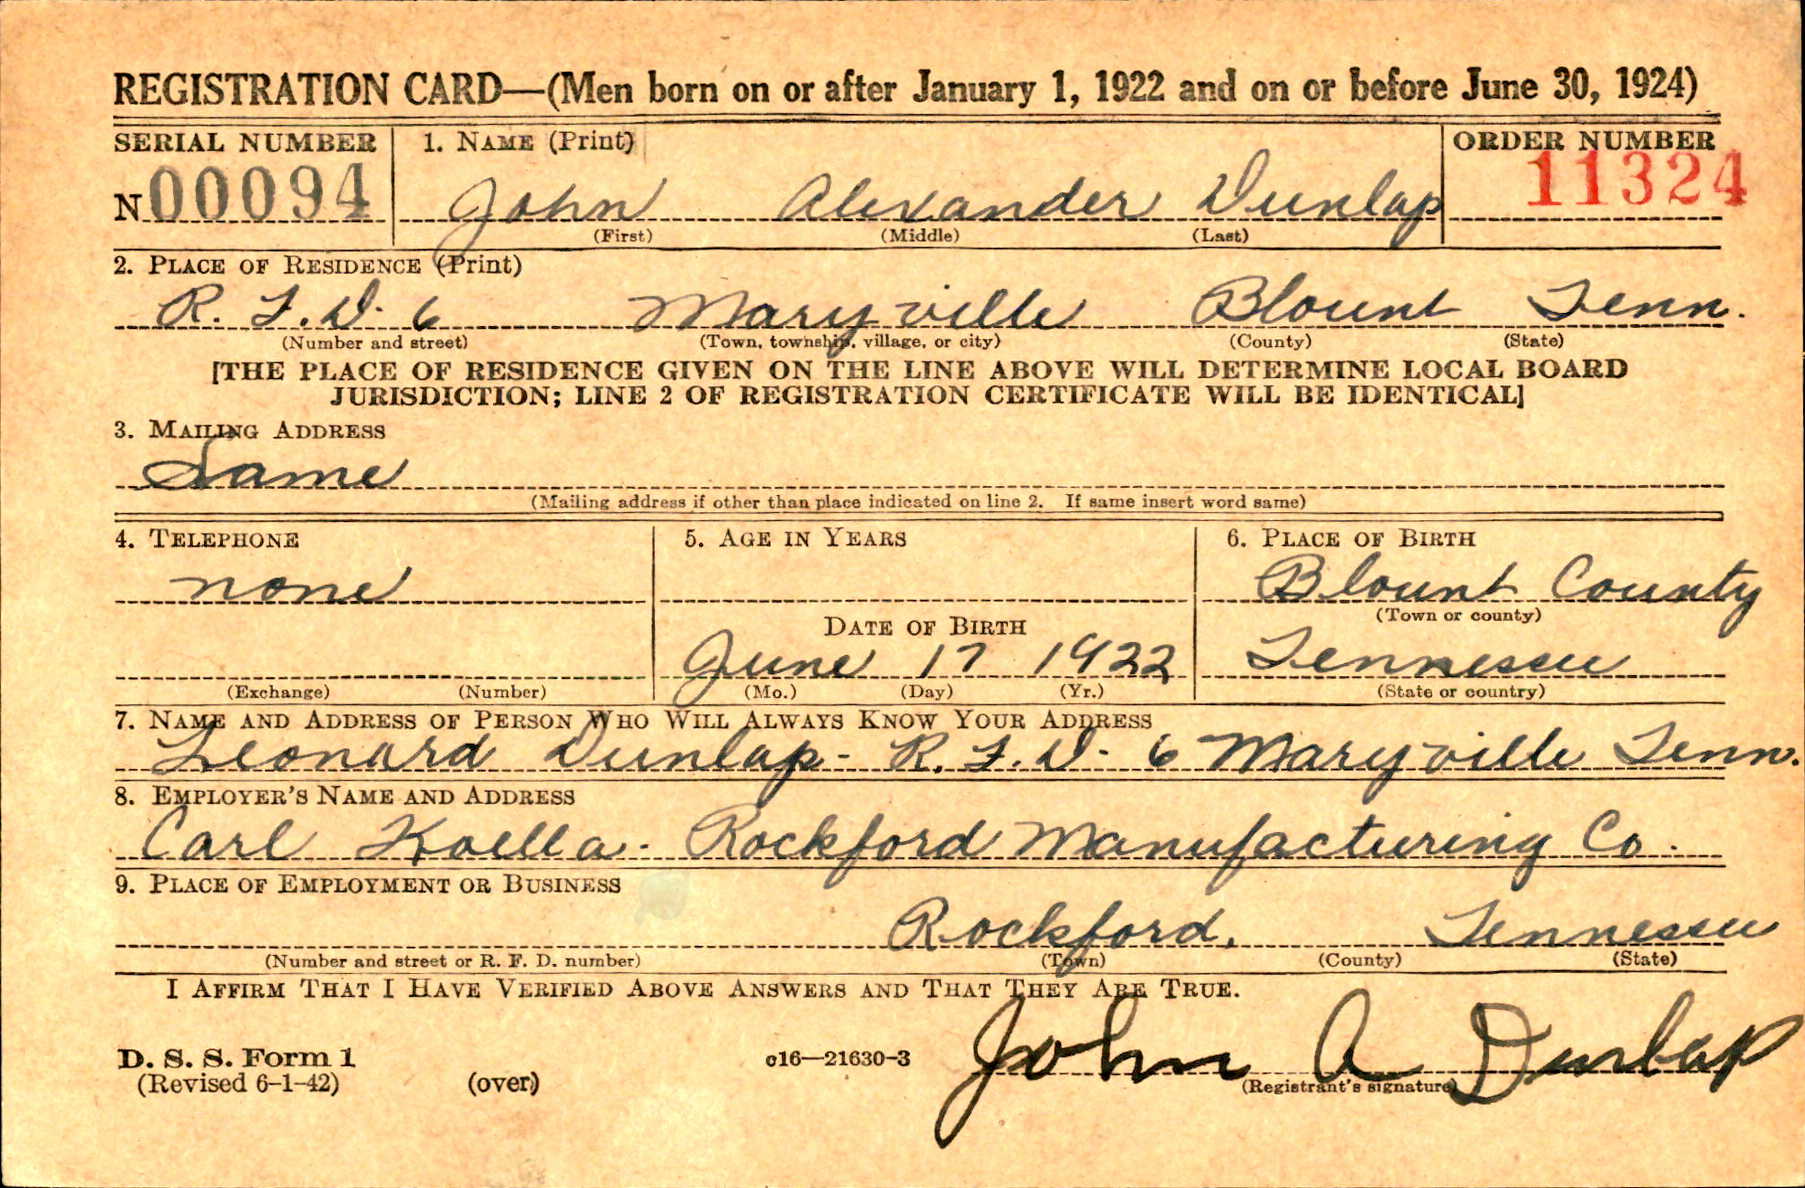 REGISTRATION CARD—(Men born on or after January 1, 1922 and on or before June 30, 1924)
SERIAL NUMBER 1. NAME (Print) ORDER NUMBER
N 00094 John Alexander Dunlap 11324
(First) (Middle) (Last)
2. PLACE OF RESIDENCE (Print)
R. F. D. 6 Maryville Blount Tenn.
(Number and street) (Town, township, village, or city) (County) (State)
[THE PLACE OF RESIDENCE GIVEN ON THE LINE ABOVE WILL DETERMINE LOCAL BOARD
JURISDICTION; LINE 2 OF REGISTRATION CERTIFICATE WILL BE IDENTICAL]
3. MAILING ADDRESS
Same
(Mailing address if other than place indicated on line 2. If same insert word same)
4. TELEPHONE 5. AGE IN YEARS 6. PLACE OF BIRTH
none Blount County
(Town or county)
DATE OF BIRTH
June 17 1922 Tennessee
(Exchange) (Number) (Mo.) (Day) (Yr.) (State or country)
7. NAME AND ADDRESS OF PERSON WHO WILL ALWAYS KNOW YOUR ADDRESS
Leonard Dunlap - R. F. D. 6 Maryville Tenn.
8. EMPLOYER'S NAME AND ADDRESS
Carl Koella - Rockford Manufacturing Co.
9. PLACE OF EMPLOYMENT OR BUSINESS
Rockford, Tennessee
(Number and street or R. F. D. number) (Town) (County) (State)
I AFFIRM THAT I HAVE VERIFIED ABOVE ANSWERS AND THAT THEY ARE TRUE.
D. S. S. Form 1 c16—21630-3 John A Dunlap
(Revised 6-1-42) (over) (Registrant's signature)